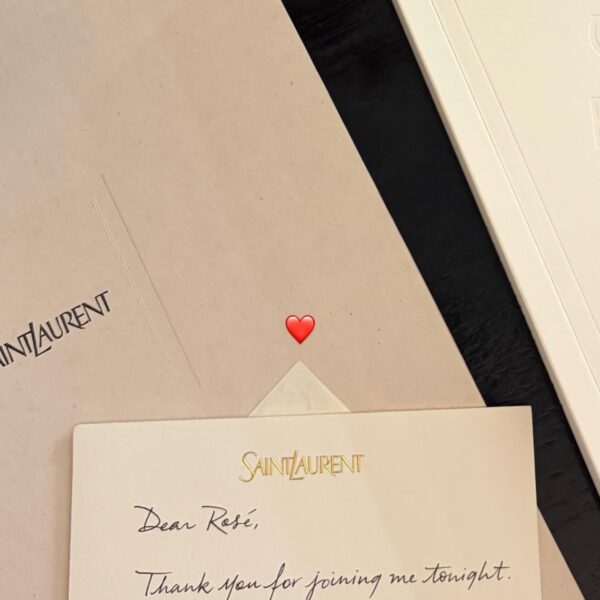 SAINT LAURENT
SAINT LAURENT
Dear Rosé,
Thank you for joining me tonight.